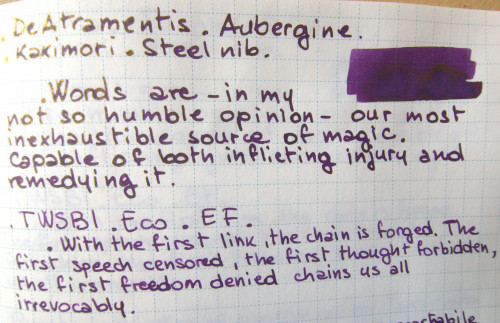 . DeAtramentis . Aubergine.
. Kakimori . Steel nib.
. Words are - in my
not so humble opinion - our most
inexhaustible source of magic.
Capable of both inflicting injury and
remedying it.
. TWSBI . Eco . EF.
. With the first link, the chain is forged. The
first speech censored, the first thought forbidden,
the first freedom denied chains us all
irrevocably.